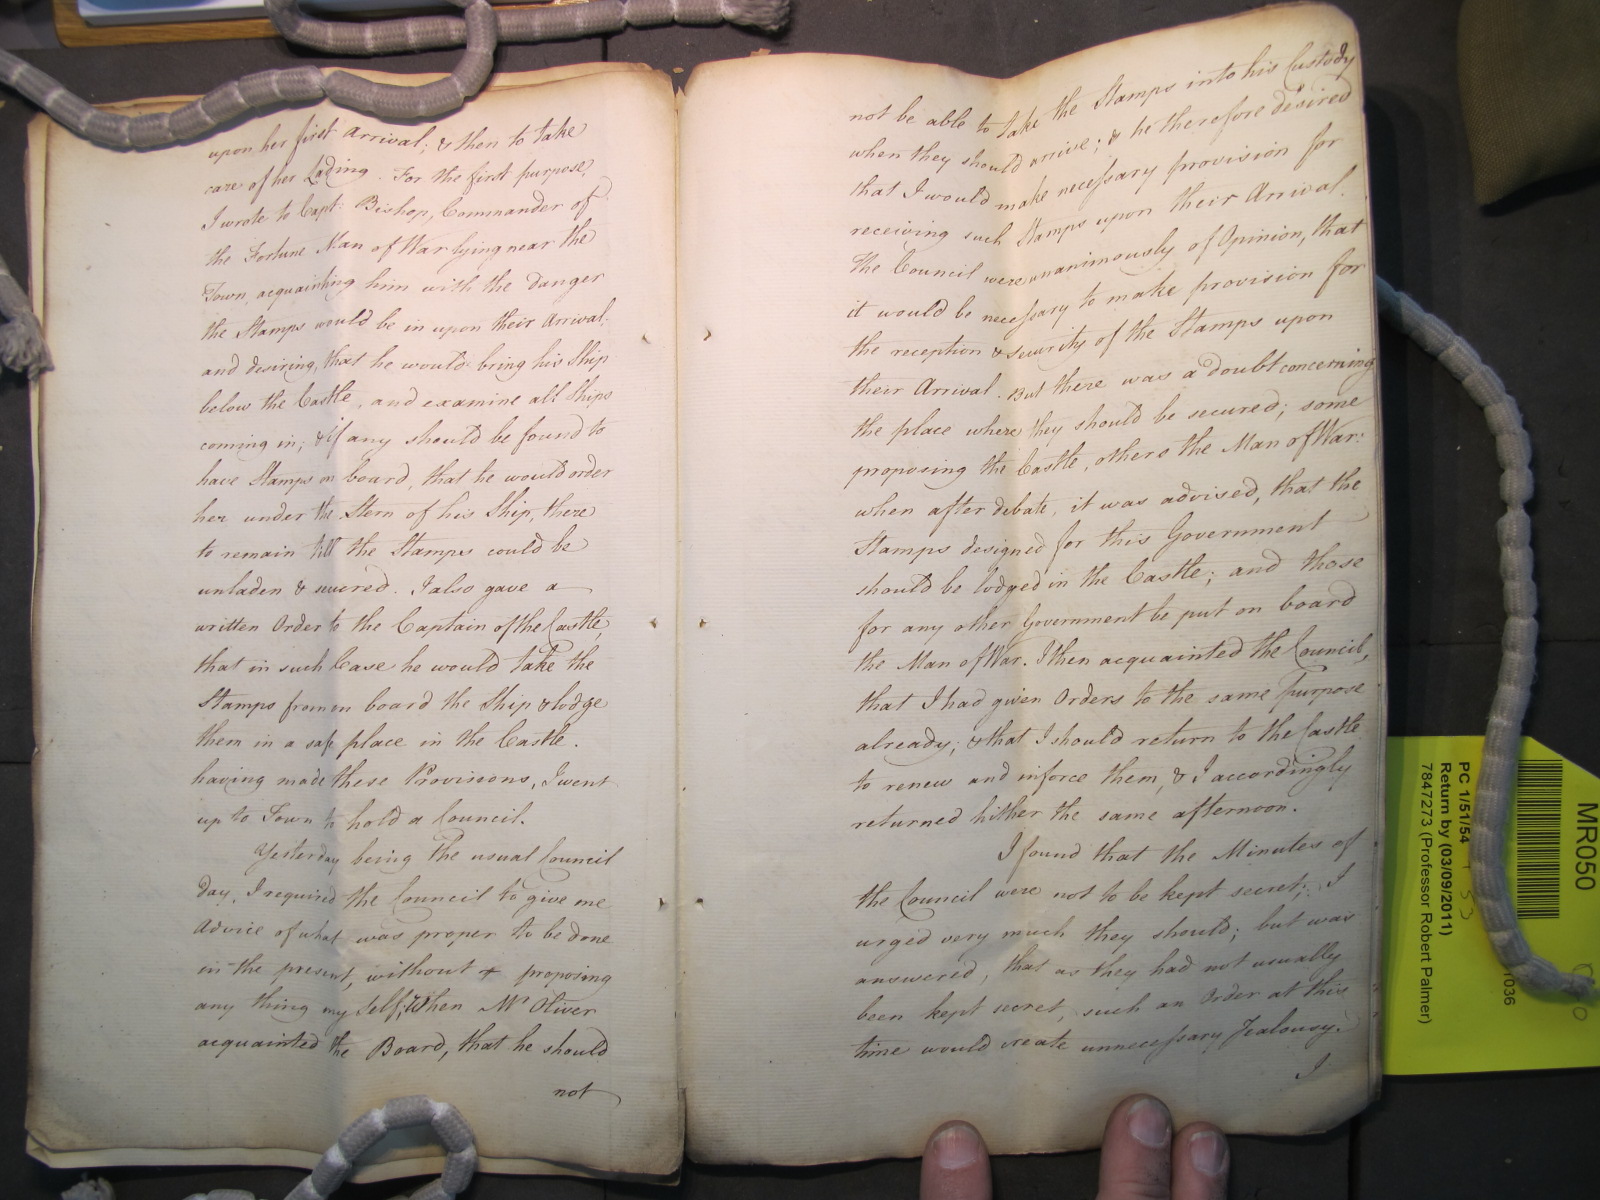 upon her first Arrival; & then to take
care of her Lading. For the first purpose,
I wrote to Capt: Bishop, Commander of
the Fortune Man of War lying near the
Town, acquainting him with the danger
the Stamps would be in upon their Arrival:
and desiring, that he would bring his Ship
below the Castle, and examine all Ships
coming in; & if any should be found to
have Stamps on board, that he would order
her under the Stern of his Ship, there
to remain till the Stamps could be
unladen & secured. I also gave a
written Order to the Captain of the Castle,
that in such Case he would take the
Stamps from on board the Ship & lodge
them in a safe place in the Castle.
having made these Provisions, I went
up to Town to hold a Council.
Yesterday being the usual Council
Day, I required the Council to give me
Advice of what was proper to be done
in the present, without proposing
any thing my self; When Mr Oliver
acquainted the Board, that he should
not
not be able to take the Stamps into his Custody
when they should arrive; & he therefore desired
that I would make necessary provision for
receiving such Stamps upon their Arrival.
The Council were unanimously of Opinion, that
it would be necessary to make provision for
the reception & security of the Stamps upon
their Arrival. But there was a doubt concerning
the place where they should be secured; some
proposing the Castle, others the Man of War:
when after debate, it was advised, that the
Stamps designed for this Government
should be lodged in the Castle; and those
for any other Government be put on board
the Man of War. I then acquainted the Council,
that I had given Orders to the same purpose
already; & that I should return to the Castle
to renew and inforce them, & I accordingly
returned hither the same afternoon.
I found that the Minutes of
the Council were not to be kept secret; I
urged very much they should; but was
answered, that as they had not usually
been kept secret, such an Order at this
time would create unnecessary Jealousy.
I
MR050
PC 1/51/54
Return by (03/09/2011)
7847273 (Professor Robert Palmer)